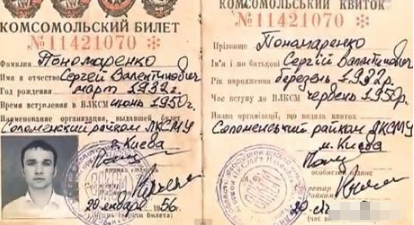 КОМСОМОЛЬСКИЙ БИЛЕТ
№ 11421070
Фамилия Пономаренко
Имя и отчество Сергей Валентинович
Год рождения март 1932 г.
Время вступления в ВЛКСМ июнь 1950 г.
Наименование организации, выдавшей билет
Соломенский райком ЛКСМУ
г. Киева
20 января 1956 г.
КОМСОМОЛЬСЬКИЙ КВИТОК
№ 11421070
Прізвище Пономаренко
Ім'я і по батькові Сергій Валентинович
Рік народження березень 1932 р.
Час вступу до ВЛКСМ червень 1950 р.
Назва організації, що видала квиток
Соломенський райком ЛКСМУ
м. Києва
20 січ